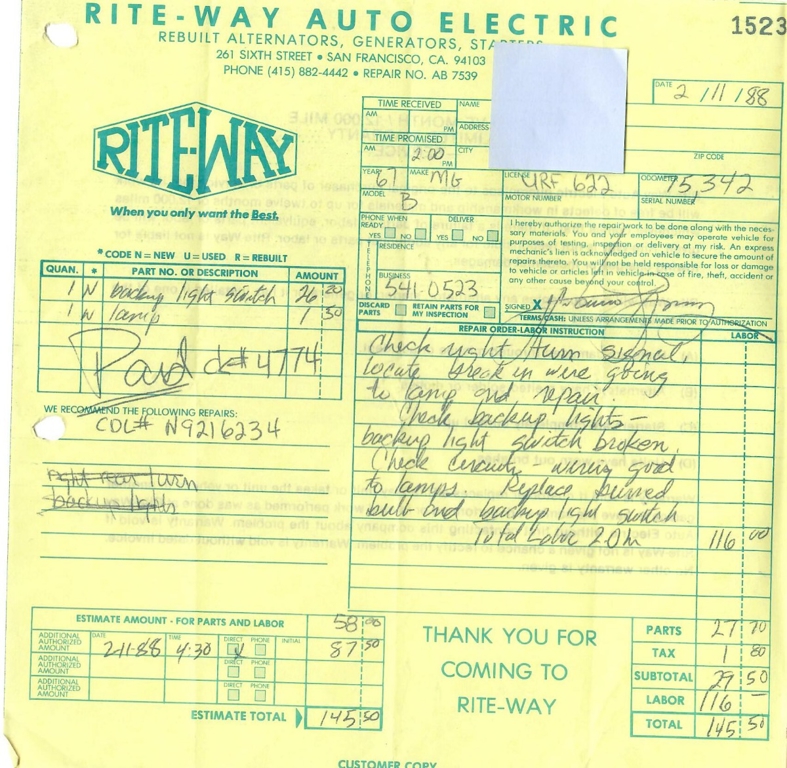 RITE-WAY AUTO ELECTRIC
1523
REBUILT ALTERNATORS, GENERATORS, STARTERS
261 SIXTH STREET • SAN FRANCISCO, CA. 94103
PHONE (415) 882-4442 • REPAIR NO. AB 7539
DATE 2/11/88
RITE-WAY
When you only want the Best.
TIME RECEIVED
AM
PM
TIME PROMISED
AM 2:00 PM
NAME
ADDRESS
CITY
ZIP CODE
YEAR 67 MAKE MG
LICENSE URF 622
ODOMETER 75,342
MODEL B
MOTOR NUMBER
SERIAL NUMBER
PHONE WHEN READY YES NO
DELIVER YES NO
TELEPHONE
RESIDENCE
BUSINESS
541-0523
I hereby authorize the repair work to be done along with the neces-
sary materials. You and your employees may operate vehicle for
purposes of testing, inspection or delivery at my risk. An express
mechanic's lien is acknowledged on vehicle to secure the amount of
repairs thereto. You will not be held responsible for loss or damage
to vehicle or articles left in vehicle in case of fire, theft, accident or
any other cause beyond your control.
SIGNED X
DISCARD PARTS
RETAIN PARTS FOR MY INSPECTION
TERMS CASH: UNLESS ARRANGEMENTS MADE PRIOR TO AUTHORIZATION
*CODE N = NEW U = USED R = REBUILT
QUAN. * PART NO. OR DESCRIPTION AMOUNT
1 N backup light switch 26 20
1 N lamp 1 50
Paid ck# 4774
WE RECOMMEND THE FOLLOWING REPAIRS:
CDL# N9216234
right rear turn
backup lights
REPAIR ORDER-LABOR INSTRUCTION LABOR
Check right turn signal,
locate break in wire going
to lamp and repair.
Check backup lights-
backup light switch broken
Check circuits - wiring good
to lamps. Replace burned
bulb and backup light switch
Total Labor 2.0 hr 116 00
ESTIMATE AMOUNT - FOR PARTS AND LABOR 58 00
ADDITIONAL AUTHORIZED AMOUNT DATE 2-11-88 TIME 4:30 DIRECT PHONE INITIAL 87 50
ADDITIONAL AUTHORIZED AMOUNT DIRECT PHONE
ADDITIONAL AUTHORIZED AMOUNT DIRECT PHONE
ESTIMATE TOTAL 145 50
THANK YOU FOR
COMING TO
RITE-WAY
PARTS 27 70
TAX 1 80
SUBTOTAL 29 50
LABOR 116 —
TOTAL 145 50
CUSTOMER COPY